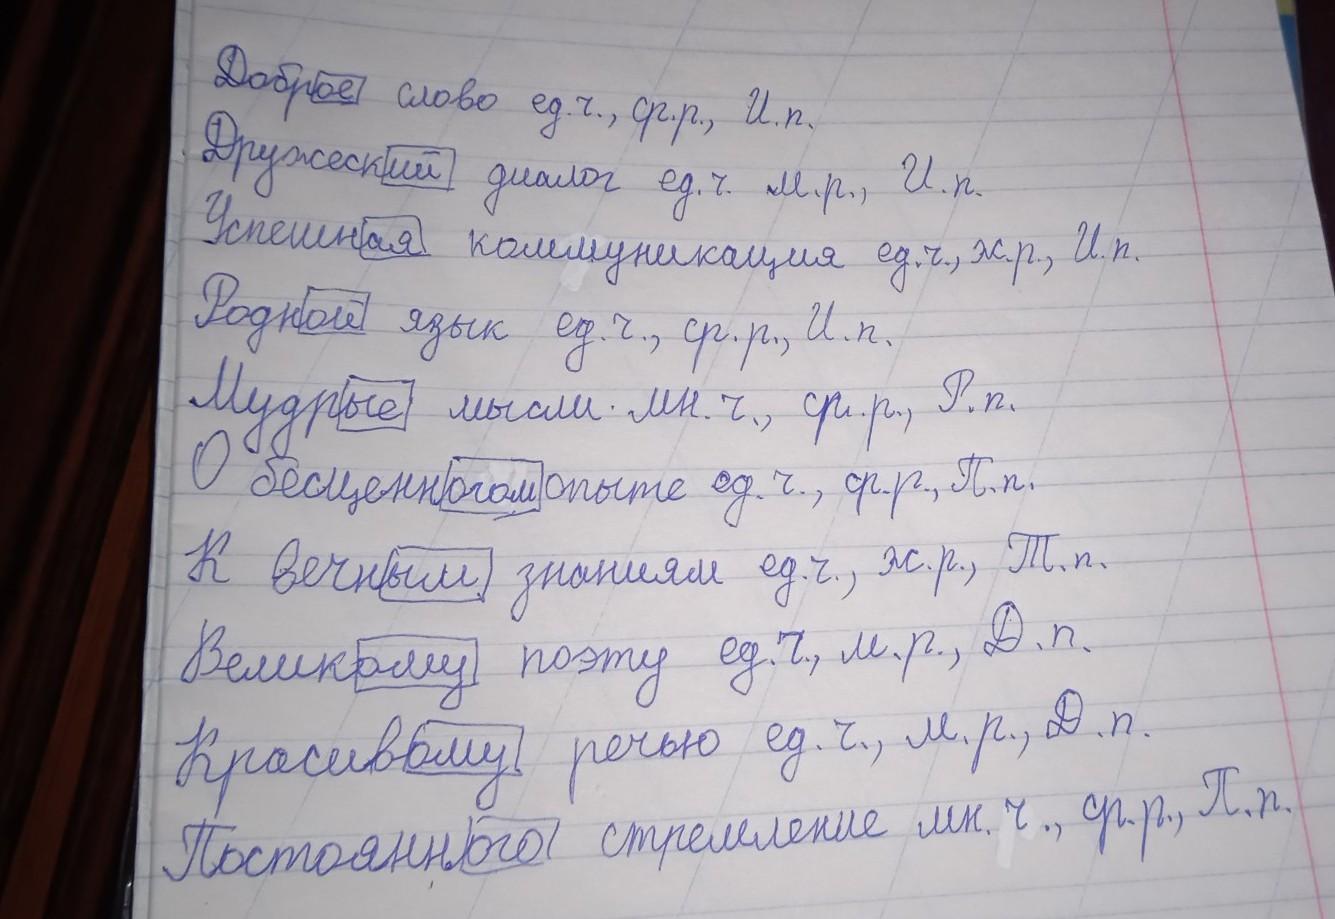 Доброе слово ед.ч., ср.р., И.п.
Дружеский диалог ед.ч. м.р., И.п.
Успешная коммуникация ед.ч., ж.р., И.п.
Родной язык ед.ч., ср.р., И.п.
Мудрые мысли. мн.ч., ср.р., Р.п.
О бесценногом опыте ед.ч., ср.р., П.п.
К вечным знаниям ед.ч., ж.р., Т.п.
Великому поэту ед.ч., м.р., Д.п.
Красивому речью ед.ч., м.р., Д.п.
Постоянного стремление мн.ч., ср.р., П.п.